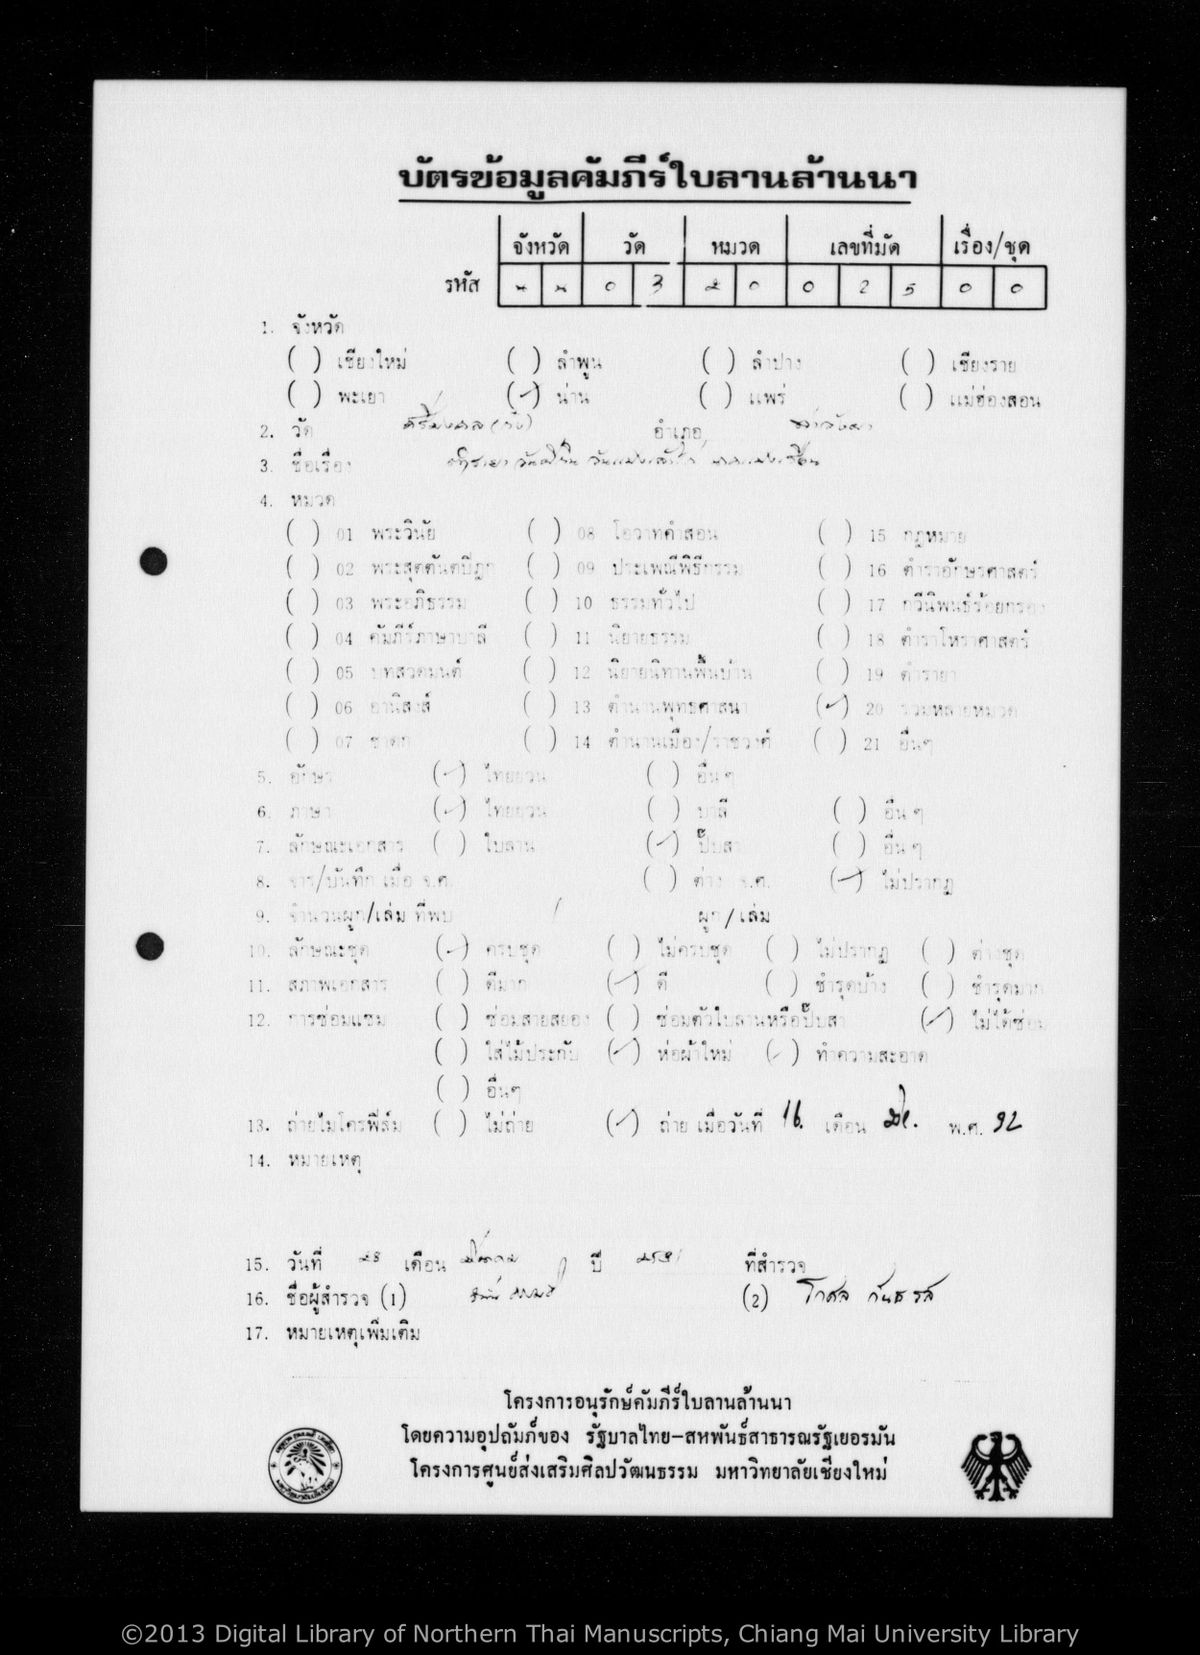 บัตรข้อมูลคัมภีร์ใบลานล้านนา
จังหวัด วัด หมวด เลขที่มัด เรื่อง/ชุด
รหัส 0 3 2 0 0 2 5 0 0
1. จังหวัด
( ) เชียงใหม่ ( ) ลำพูน ( ) ลำปาง ( ) เชียงราย
( ) พะเยา (✓) น่าน ( ) แพร่ ( ) แม่ฮ่องสอน
2. วัด อำเภอ
3. ชื่อเรื่อง
4. หมวด
( ) 01 พระวินัย ( ) 08 โอวาทคำสอน ( ) 15 กฎหมาย
( ) 02 พระสุตตันตปิฎก ( ) 09 ประเพณีพิธีกรรม ( ) 16 ตำราอักษรศาสตร์
( ) 03 พระอภิธรรม ( ) 10 ธรรมทั่วไป ( ) 17 กวีนิพนธ์ร้อยกรอง
( ) 04 คัมภีร์ภาษาบาลี ( ) 11 นิยายธรรม ( ) 18 ตำราโหราศาสตร์
( ) 05 บทสวดมนต์ ( ) 12 นิยายนิทานพื้นบ้าน ( ) 19 ตำรายา
( ) 06 อานิสงส์ ( ) 13 ตำนานพุทธศาสนา (✓) 20 รวมหลายหมวด
( ) 07 ชาดก ( ) 14 ตำนานเมือง/ราชวงศ์ ( ) 21 อื่นๆ
5. อักษร (✓) ไทยยวน ( ) อื่นๆ
6. ภาษา (✓) ไทยยวน ( ) บาลี ( ) อื่นๆ
7. ลักษณะเอกสาร ( ) ใบลาน (✓) ปั๊บสา ( ) อื่นๆ
8. จาร/บันทึก เมื่อ จ.ศ. ( ) ต่าง จ.ศ. (✓) ไม่ปรากฏ
9. จำนวนผูก/เล่ม ที่พบ / ผูก/เล่ม
10. ลักษณะชุด (✓) ครบชุด ( ) ไม่ครบชุด ( ) ไม่ปรากฏ ( ) ต่างชุด
11. สภาพเอกสาร ( ) ดีมาก (✓) ดี ( ) ชำรุดบ้าง ( ) ชำรุดมาก
12. การซ่อมแซม ( ) ซ่อมสายสยอง ( ) ซ่อมตัวใบลานหรือปั๊บสา (✓) ไม่ได้ซ่อม
( ) ใส่ไม้ประกับ (✓) ห่อผ้าใหม่ (✓) ทำความสะอาด
( ) อื่นๆ
13. ถ่ายไมโครฟิล์ม ( ) ไม่ถ่าย (✓) ถ่าย เมื่อวันที่ 16. เดือน พ.ศ. 32
14. หมายเหตุ
15. วันที่ 28 เดือน ปี 2531 ที่สำรวจ
16. ชื่อผู้สำรวจ (1) (2) โกศล
17. หมายเหตุเพิ่มเติม
โครงการอนุรักษ์คัมภีร์ใบลานล้านนา
โดยความอุปถัมภ์ของ รัฐบาลไทย-สหพันธ์สาธารณรัฐเยอรมัน
โครงการศูนย์ส่งเสริมศิลปวัฒนธรรม มหาวิทยาลัยเชียงใหม่
©2013 Digital Library of Northern Thai Manuscripts, Chiang Mai University Library